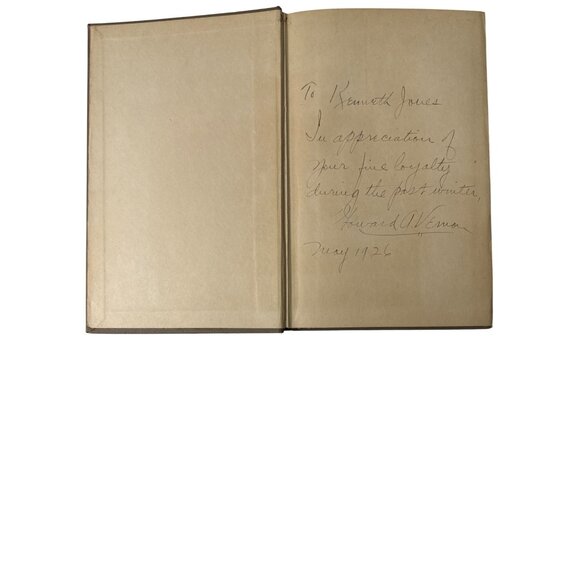 To Kenneth Jones
In appreciation of
your fine loyalty
during the past winter,
Howard A. Vernon
May 1926